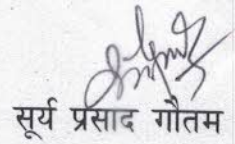 सूर्य प्रसाद गौतम